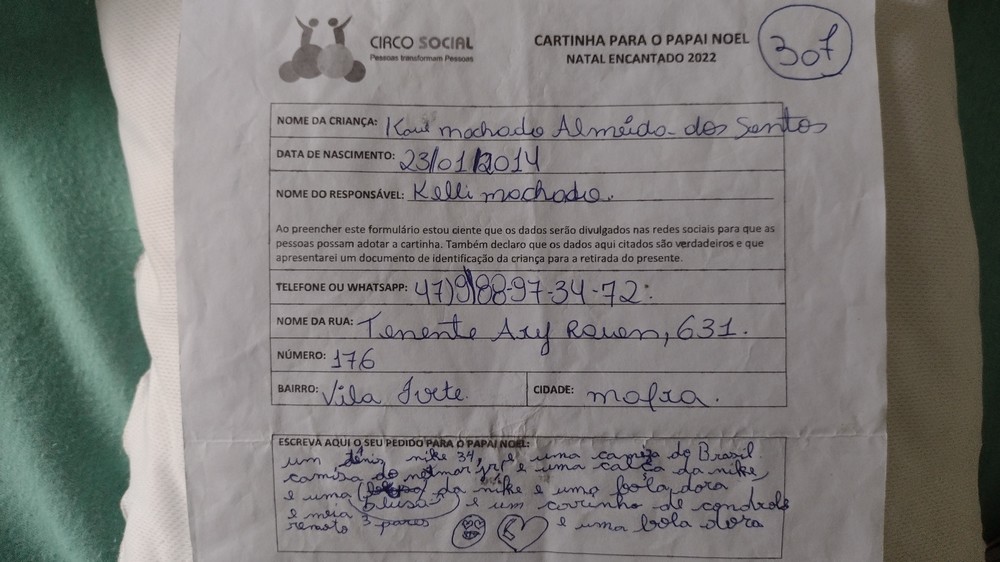 CIRCO SOCIAL
Pessoas transformam Pessoas
CARTINHA PARA O PAPAI NOEL
NATAL ENCANTADO 2022
307
NOME DA CRIANÇA: Kauê machado Alméida dos Santos
DATA DE NASCIMENTO: 23/01/2014
NOME DO RESPONSÁVEL: Kelli machado.
Ao preencher este formulário estou ciente que os dados serão divulgados nas redes sociais para que as
pessoas possam adotar a cartinha. Também declaro que os dados aqui citados são verdadeiros e que
apresentarei um documento de identificação da criança para a retirada do presente.
TELEFONE OU WHATSAPP: 47)9/88-97-34-72:
NOME DA RUA: Tenente Ary Rauen, 631.
NÚMERO: 176
BAIRRO: Vila Ivete.
CIDADE: mafra.
ESCREVA AQUI O SEU PEDIDO PARA O PAPAI NOEL:
um tênis nike 34, e uma camiza do Brasil
camisa do neymar jr, e uma calça da nike,
e uma da nike e uma bola dora
blusa e um corrinho de condrole
e meia 3 pares
remoto e uma bola dora